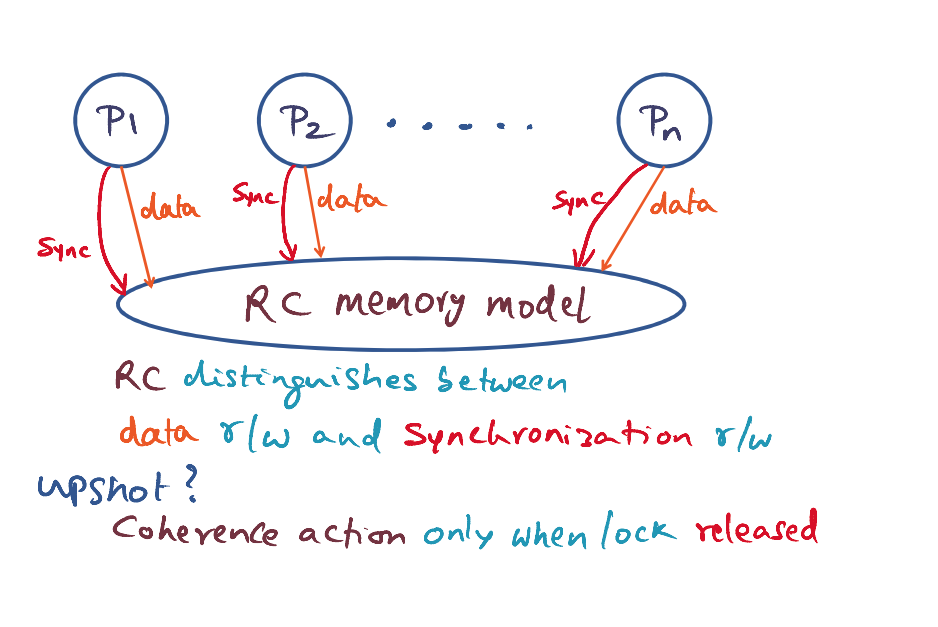 P1 P2 ..... Pn
Sync data Sync data Sync data
RC memory model
RC distinguishes between
data r/w and Synchronization r/w
upshot?
Coherence action only when lock released